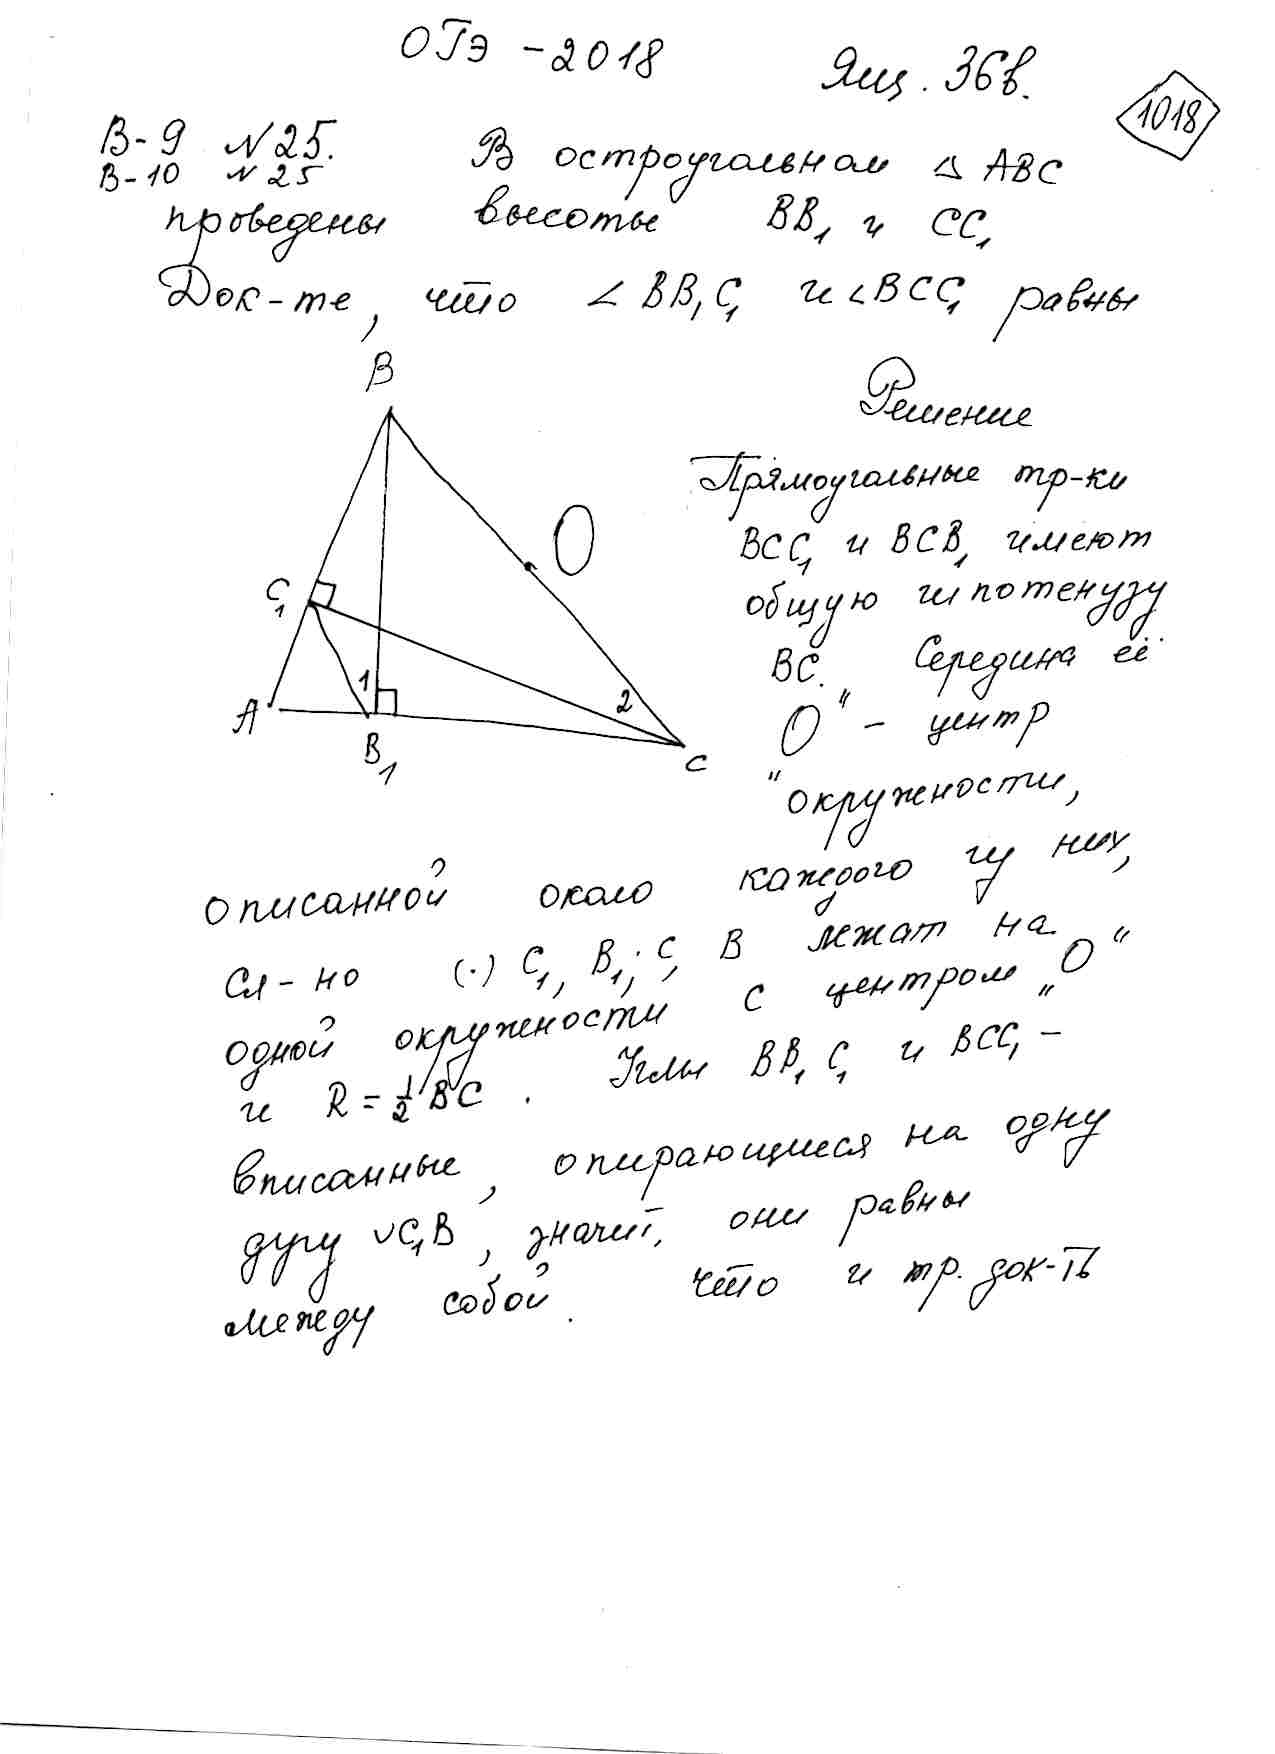 ОГЭ - 2018
Ящ. 36в.
1018
В-9 №25. В остроугольном △ ABC
В-10 №25
проведены высоты BB₁ и CC₁
Док-те, что ∠BB₁C₁ и ∠BCC₁ равны
B
O
C₁
1
2
A
B₁
C
Решение
Прямоугольные тр-ки
BCC₁ и BCB₁ имеют
общую гипотенузу
BC. Середина её
"O" - центр
окружности,
описанной около каждого из них,
Сл-но (·) C₁, B₁; C, B лежат на
одной окружности с центром "O"
и R = 1/2 BC. Углы BB₁C₁ и BCC₁ -
вписанные, опирающиеся на одну
дугу ∪C₁B, значит, они равны
между собой. что и тр. док-ть